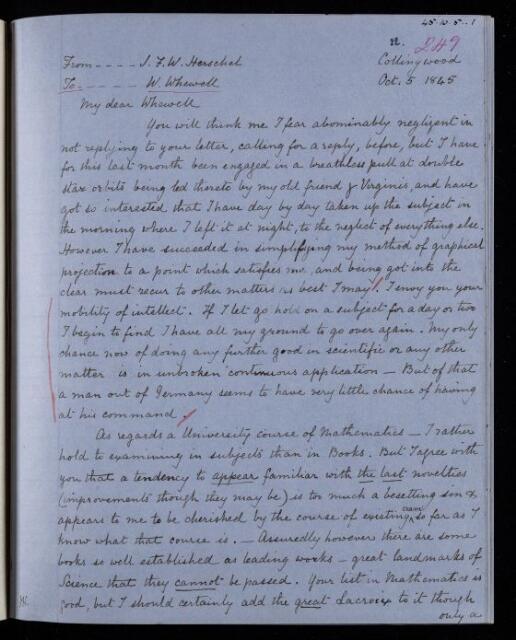 45·10·5··1
n. 249
From - - - - J. F. W. Herschel Collingwood
To - - - - W. Whewell Oct. 5 1845
My dear Whewell
You will think me I fear abominably negligent in
not replying to your letter, calling for a reply, before, but I have
for this last month been engaged in a breathless pull at double
star orbits being led thereto by my old friend γ Virginis, and have
got so interested that I have day by day taken up the subject in
the morning where I left it at night, to the neglect of everything else.
However I have succeeded in simplifying my method of graphical
projection to a point which satisfies me, and being got into the
clear must recur to other matters as best I may! I envy you your
mobility of intellect. If I let go hold on a subject for a day or two
I begin to find I have all my ground to go over again. My only
chance now of doing any further good in scientific or any other
matter is in unbroken continuous application — But of that
a man out of Germany seems to have very little chance of having
at his command.
As regards a University course of Mathematics — I rather
hold to examining in subjects than in Books. But I agree with
you that a tendency to appear familiar with the last novelties
(improvements though they may be) is too much a besetting sin &
appears to me to be cherished by the course of existing exam<sup>s</sup> so far as I
know what that course is. — Assuredly however there are some
books so well established as leading works — great landmarks of
Science that they cannot be passed. Your list in Mathematics is
good, but I should certainly add the great Lacroix to it though
only a